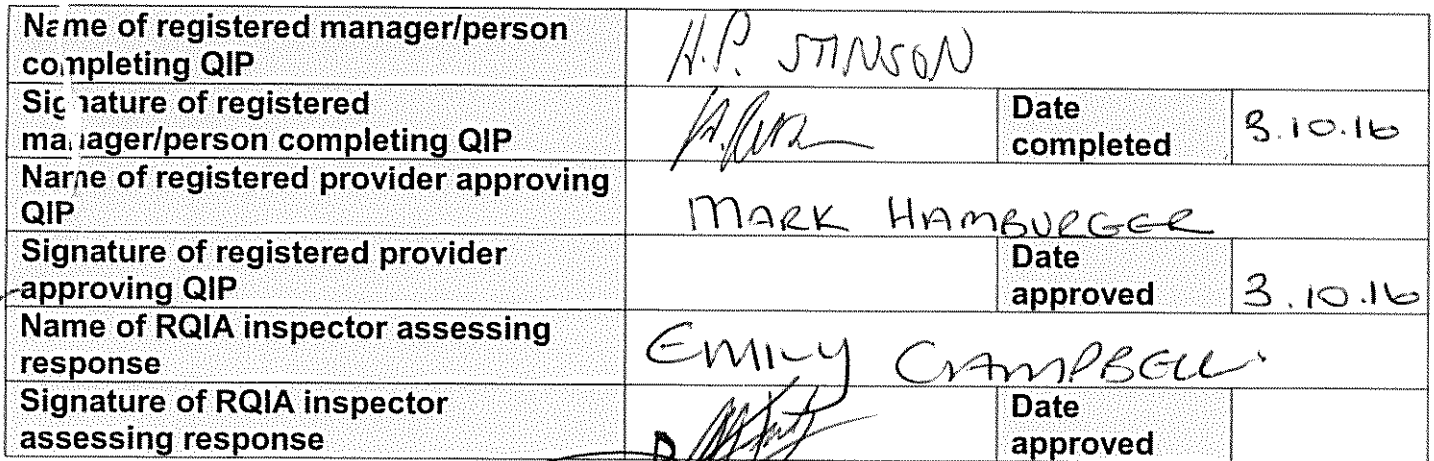 Name of registered manager/person completing QIP H.P. STINSON
Signature of registered manager/person completing QIP Date completed 3.10.16
Name of registered provider approving QIP MARK HAMBURGER
Signature of registered provider approving QIP Date approved 3.10.16
Name of RQIA inspector assessing response EMILY CAMPBELL
Signature of RQIA inspector assessing response Date approved